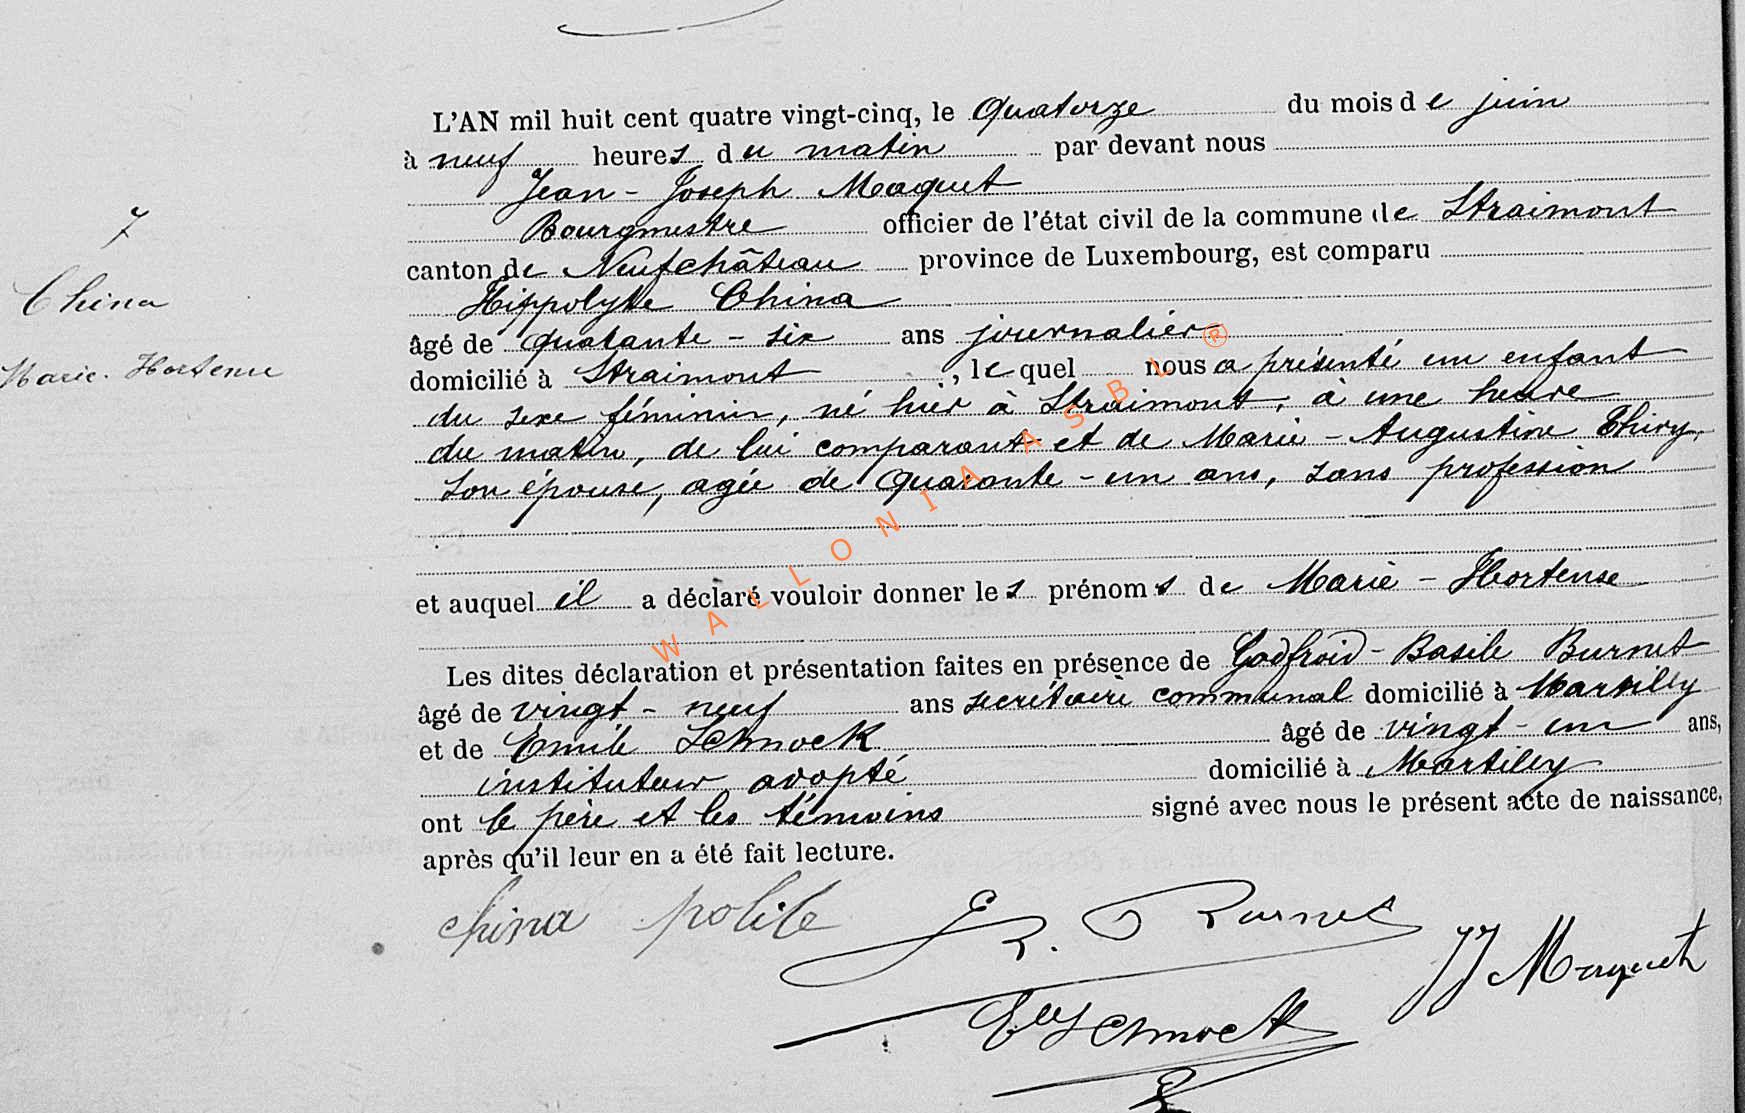 L'AN mil huit cent quatre vingt-cinq, le quatorze du mois de juin
à neuf heures du matin par devant nous
Jean-Joseph Maquet
Bourgmestre officier de l'état civil de la commune de Straimont
canton de Neufchâteau province de Luxembourg, est comparu
Hippolyte China
âgé de quarante-six ans journalier
domicilié à Straimont, le quel nous a présenté un enfant
du sexe féminin, né hier à Straimont, à une heure
du matin, de lui comparant et de Marie-Augustine Thiry,
son épouse, agée de quarante-un ans, sans profession
et auquel il a déclaré vouloir donner les prénoms de Marie-Hortense
Les dites déclaration et présentation faites en présence de Godfroid-Basile Burnet
âgé de vingt-neuf ans secrétaire communal domicilié à Martilly
et de Emile Schmock âgé de vingt-un ans,
instituteur adopté domicilié à Martilly
ont le père et les témoins signé avec nous le présent acte de naissance,
après qu'il leur en a été fait lecture.
7
China
Marie-Hortense
china polite
Burnet
JJ Maquet
Schmock
WALLONIA ASBL ®